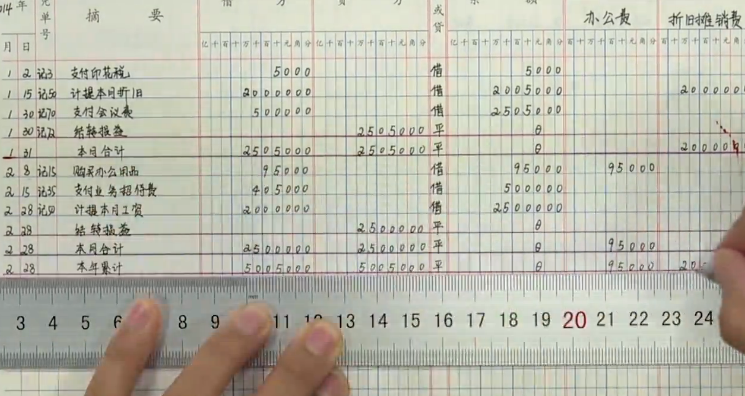 014年 摘要 或贷 办公费 折旧摊销费
月 日 单号 亿千百十万千百十元角分 亿千百十万千百十元角分 亿千百十万千百十元角分
1 2 记3 支付印花税 5000 借 5000
1 15 记50 计提本月折旧 2000000 借 2005000 200000
1 30 记70 支付会议费 500000 借 2505000
1 30 记72 结转损益 2505000 平 θ
1 31 本月合计 2505000 2505000 平 θ 20000
2 8 记15 购买办公用品 95000 借 95000 95000
2 15 记35 支付业务招待费 405000 借 500000
2 28 记50 计提本月工资 2000000 借 2500000
2 28 结转损益 2500000 平 θ
2 28 本月合计 2500000 2500000 平 θ 95000
2 28 本年累计 5005000 5005000 平 θ 95000 20
3 4 5 6 8 9 11 12 13 14 15 16 17 18 19 20 21 22 23 24